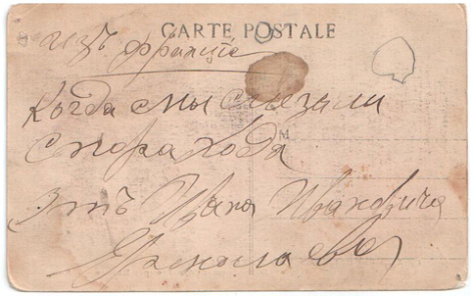 CARTE POSTALE
изъ Франціе
Когда мы слезыли
спорахода
этъ Ивана Ивановича